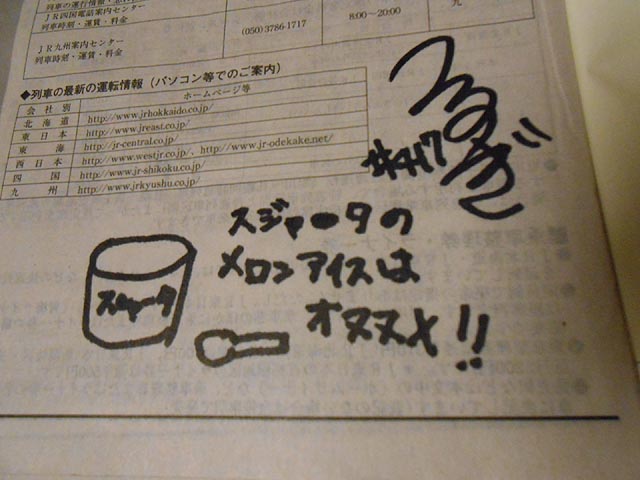 列車の運行情報・
JR四国電話案内センター
列車時刻・運賃・料金
8:00~20:00
九
JR九州案内センター
列車時刻・運賃・料金
(050) 3786-1717
◆列車の最新の運転情報（パソコン等でのご案内）
会社別 ホームページ等
北海道 http://www.jrhokkaido.co.jp/
東日本 http://jreast.co.jp/
東海 http://jr-central.co.jp/
西日本 http://www.westjr.co.jp/、http://www.jr-odekake.net/
四国 http://www.jr-shikoku.co.jp/
九州 http://www.jrkyushu.co.jp/
#417
スジャータの
メロンアイスは
オススメ!!
スジャータ